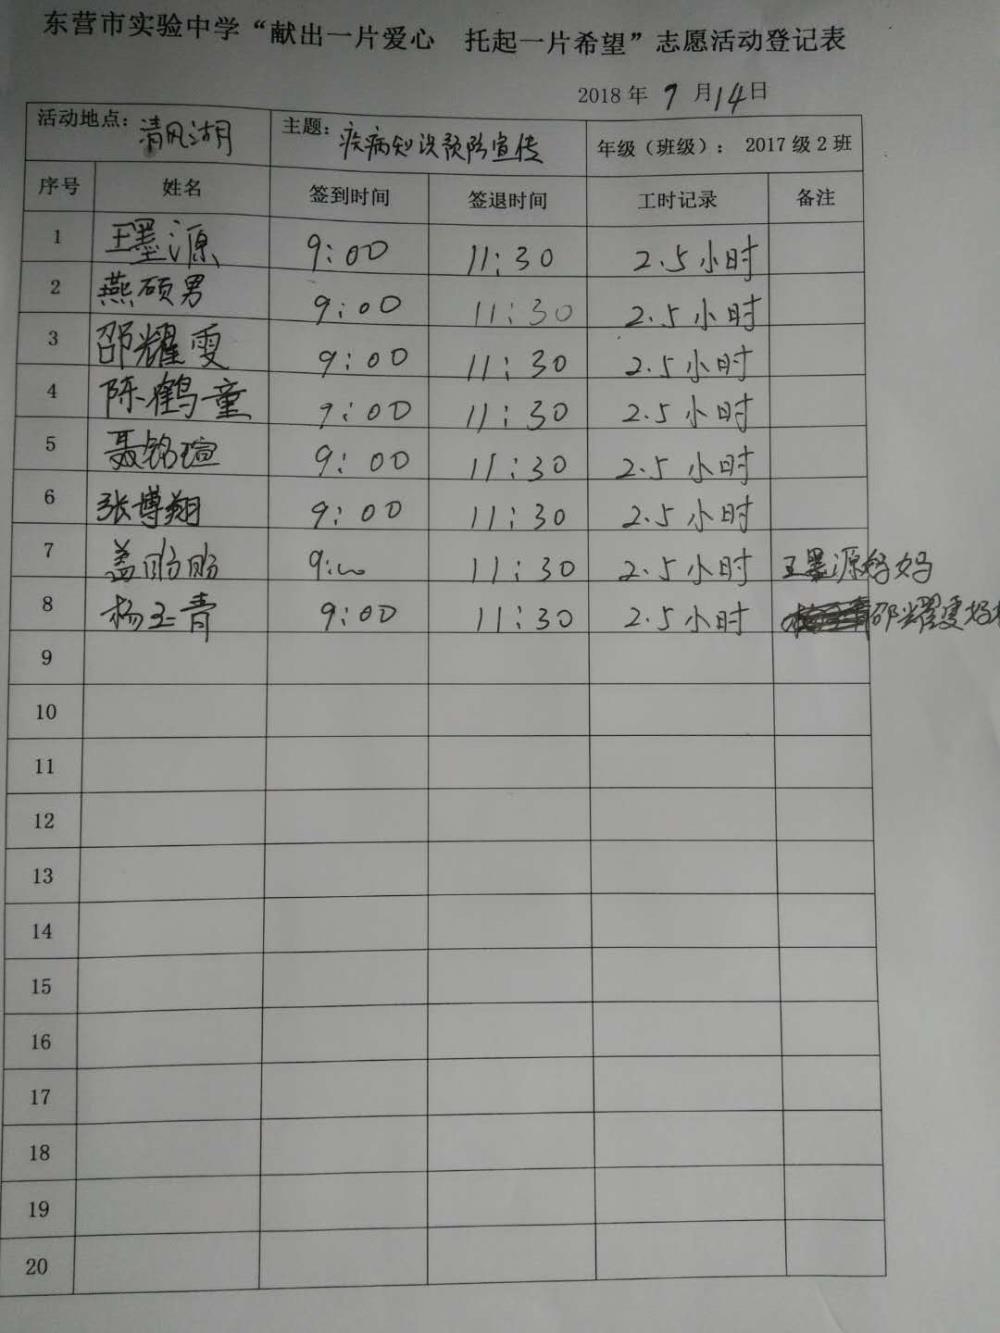 东营市实验中学“献出一片爱心 托起一片希望”志愿活动登记表
2018 年 9 月 14 日
活动地点: 清风湖 主题: 疾病知识预防宣传 年级（班级）: 2017 级 2 班
序号 姓名 签到时间 签退时间 工时记录 备注
1 王墨源 9:00 11:30 2.5 小时
2 燕硕男 9:00 11:30 2.5 小时
3 邵耀雯 9:00 11:30 2.5 小时
4 陈鹤童 9:00 11:30 2.5 小时
5 聂铭瑄 9:00 11:30 2.5 小时
6 张博翔 9:00 11:30 2.5 小时
7 盖盼盼 9:00 11:30 2.5 小时 王墨源妈妈
8 杨玉青 9:00 11:30 2.5 小时 邵耀雯妈
9
10
11
12
13
14
15
16
17
18
19
20